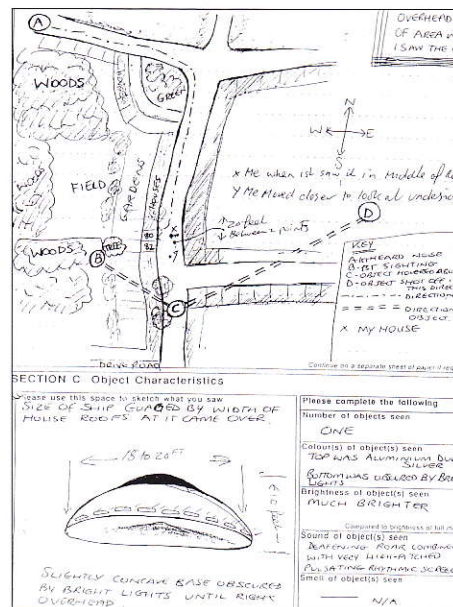 A
OVERHEAD
OF AREA W
I SAW THE
WOODS
GREEN
N
W E
S
x Me when 1st saw it in Middle of R
Y Me Moved closer to look at underside
WOODS
FIELD
GARDENS
HOUSES
20 feet
between 2 points
80
82
x
Y
D
WOODS
TREE
B
C
KEY
A-HEARD NOISE
B-1ST SIGHTING
C-OBJECT HOVERED ABO
D-OBJECT SHOT OFF I
THIS DIREC
DIRECTION
DIRECTION
OBJECT
X MY HOUSE
DRIVE ROAD
Continue on a separate sheet of paper if requ
SECTION C Object Characteristics
Please use this space to sketch what you saw
SIZE OF SHIP GUAGED BY WIDTH OF
HOUSE ROOFS AT IT CAME OVER.
18 to 20FT
SLIGHTLY CONCAVE BASE OBSCURED
BY BRIGHT LIGHTS UNTIL RIGHT
OVERHEAD
Please complete the following
Number of objects seen
ONE
Colour(s) of object(s) seen
TOP WAS ALUMINIUM DUL
SILVER
BOTTOM WAS OBSCURED BY BRI
LIGHTS
Brightness of object(s) seen
MUCH BRIGHTER
Compared to brightness of full m
Sound of object(s) seen
DEAFENING ROAR COMBIN
WITH VERY HIGH-PITCHED
PULSATING RHYTHMIC SCREE
Smell of object(s) seen
N/A